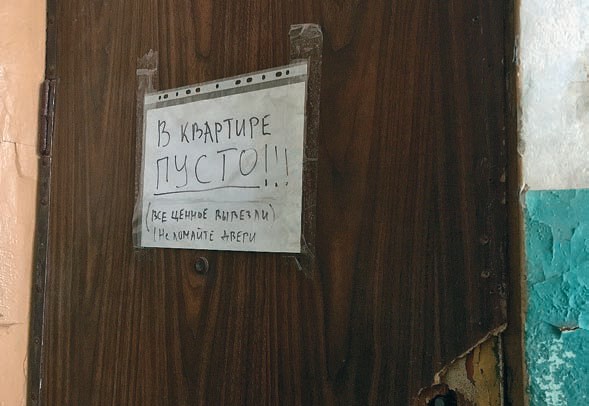 В КВАРТИРЕ
ПУСТО!!!
(ВСЕ ЦЕННОЕ ВЫВЕЗЛИ)
(НЕ ЛОМАЙТЕ ДВЕРИ